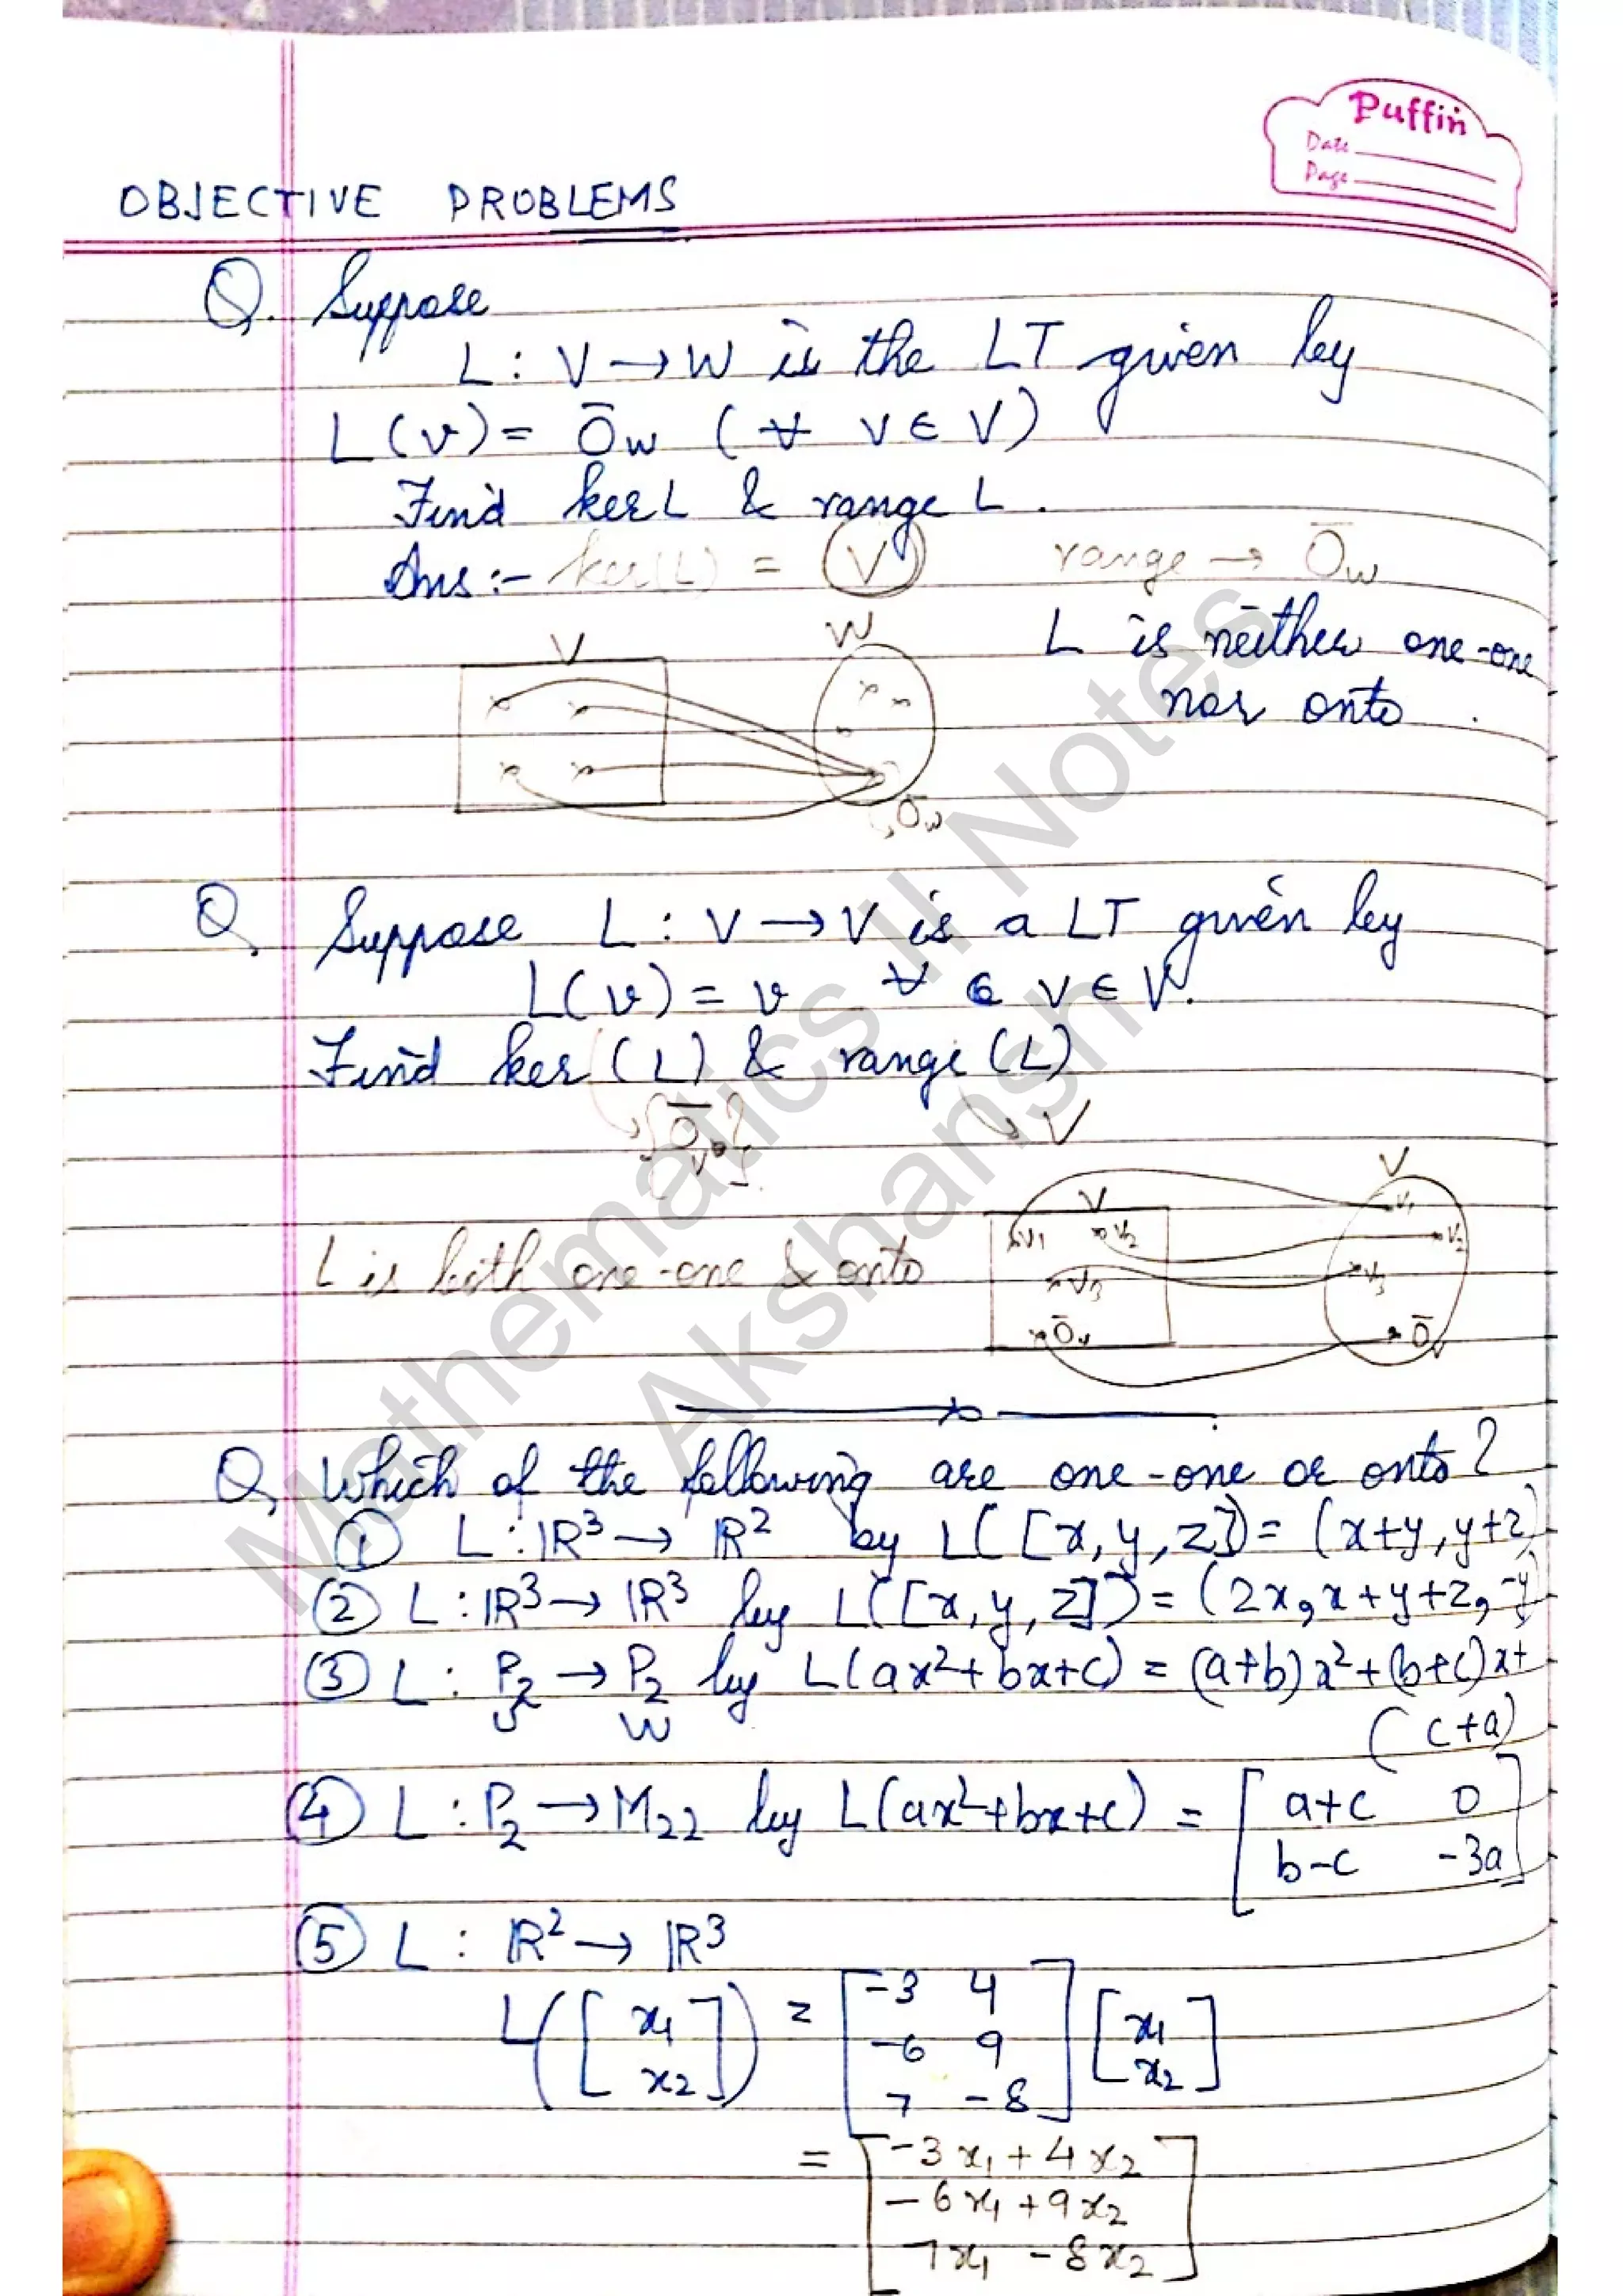 Puffin
Date
Page
OBJECTIVE PROBLEMS
Q. Suppose
L : V → W is the LT given by
L(v) = 0̄w (∀ v ∈ V)
Find ker L & range L.
Ans :- ker(L) = V range → 0̄w
L is neither one-one
nor onto.
V W
0̄w
Q. Suppose L : V → V is a LT given by
L(v) = v ∀ v ∈ V.
Find ker (L) & range (L)
{0̄v} V
V V
v1 v2 v1 v2
L is both one-one & onto
v3 v3
0̄v 0̄v
Q. Which of the following are one-one or onto?
① L : ℝ³ → ℝ² by L([x, y, z]) = (x+y, y+z)
② L : ℝ³ → ℝ³ by L([x, y, z]) = (2x, x+y+z, -y)
③ L : P₂ → P₂ by L(ax²+bx+c) = (a+b)x²+(b+c)x+
W
(c+a)
④ L : P₂ → M₂₂ by L(ax²+bx+c) = [a+c 0
b-c -3a]
⑤ L : ℝ² → ℝ³
L([x₁ x₂]) = [-3 4
-6 9
7 -8] [x₁ x₂]
= [-3x₁ + 4x₂
-6x₁ + 9x₂
7x₁ - 8x₂]
Mathematics II Notes
Akshansh